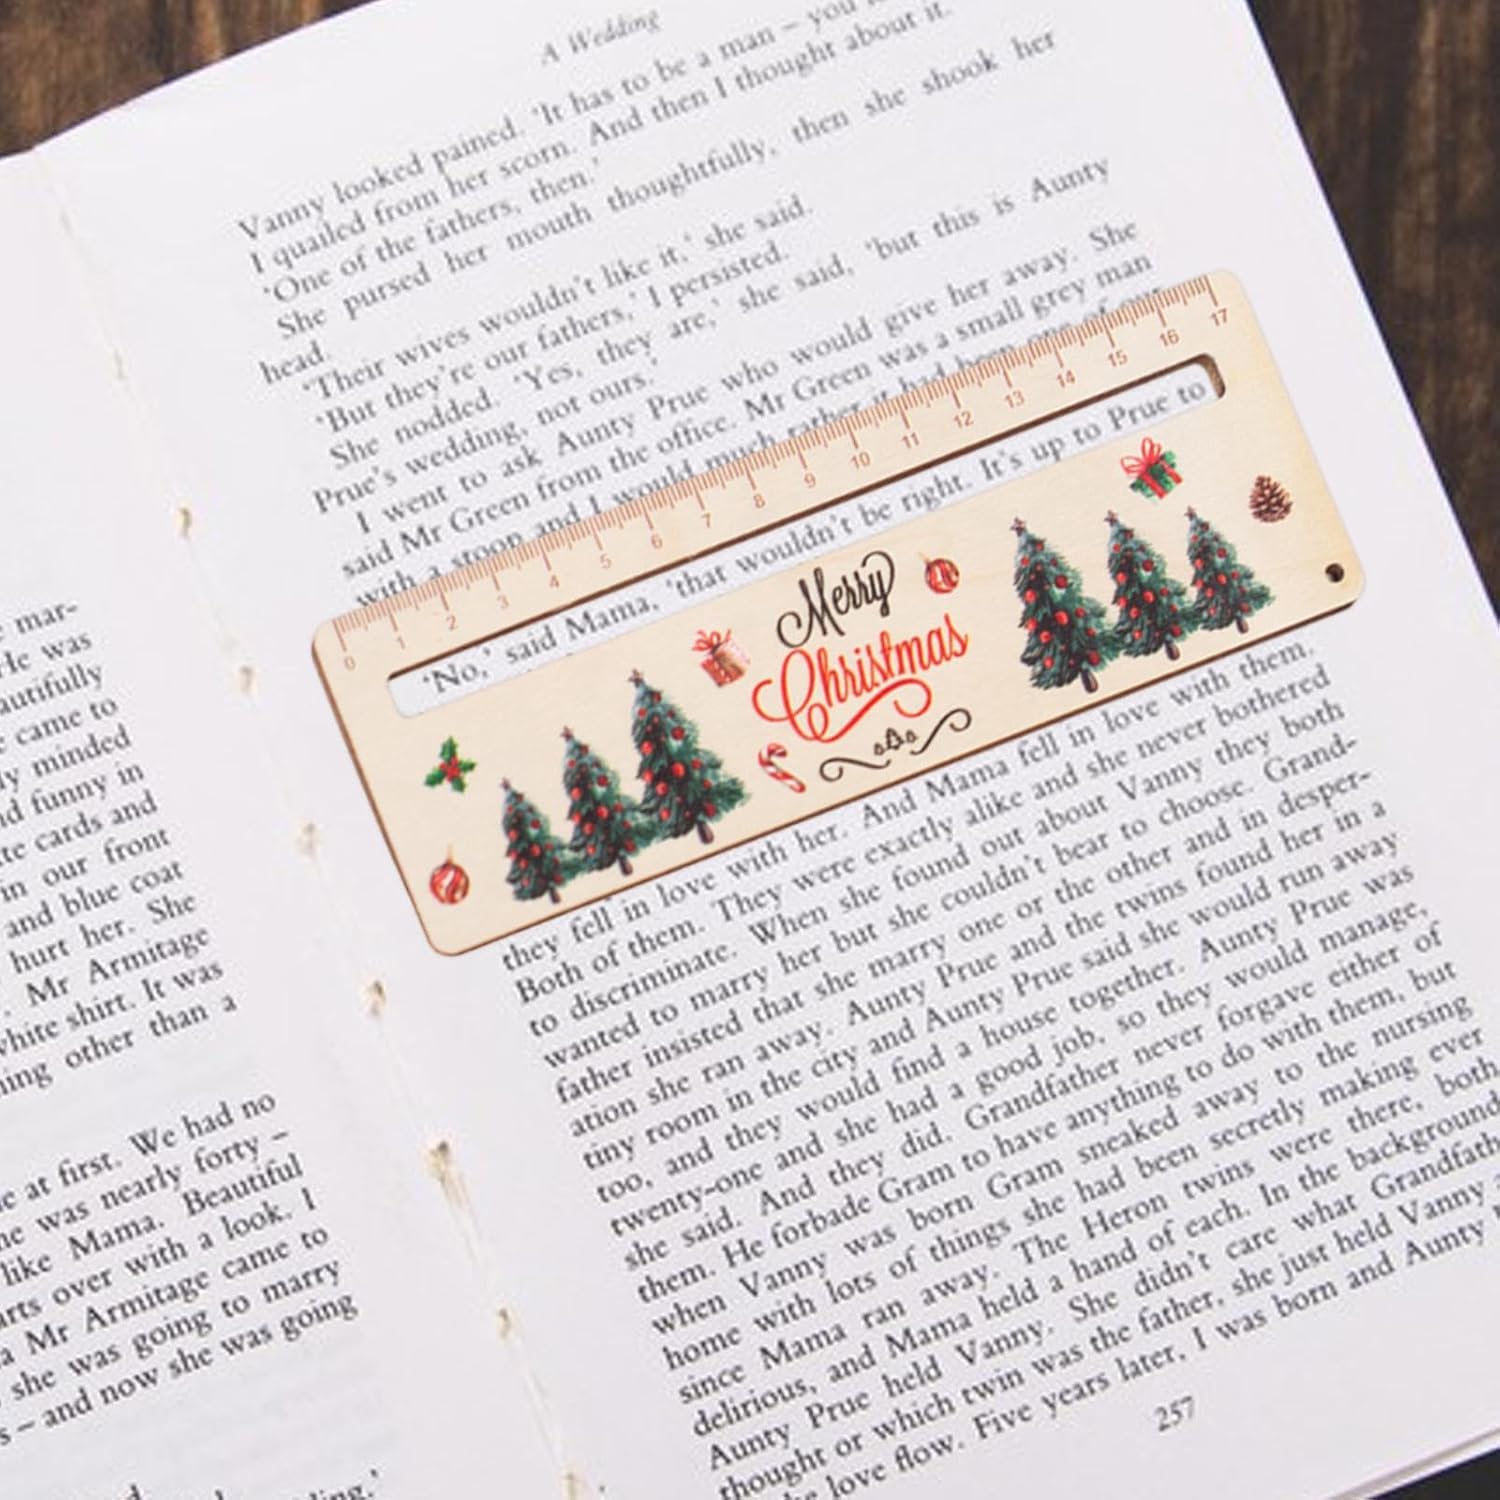 A Wedding
Vanny looked pained. 'It has to be a man – you
I quailed from her scorn. And then I thought about it.
'One of the fathers, then.'
She pursed her mouth thoughtfully, then she shook her
head.
'Their wives wouldn't like it,' she said.
'But they're our fathers,' I persisted.
She nodded. 'Yes, they are,' she said, 'but this is Aunty
Prue's wedding, not ours.'
I went to ask Aunty Prue who would give her away. She
said Mr Green from the office. Mr Green was a small grey man
with a stoop and I would much rather it had been one of our
0 1 2 3 4 5 6 7 8 9 10 11 12 13 14 15 16 17
'No,' said Mama, 'that wouldn't be right. It's up to Prue to
Merry
Christmas
they fell in love with her. And Mama fell in love with them.
Both of them. They were exactly alike and she never bothered
to discriminate. When she found out about Vanny they both
wanted to marry her but she couldn't bear to choose. Grand-
father insisted that she marry one or the other and in desper-
ation she ran away. Aunty Prue and the twins found her in a
tiny room in the city and Aunty Prue said she would run away
too, and they would find a house together. Aunty Prue was
twenty-one and she had a good job, so they would manage,
she said. And they did. Grandfather never forgave either of
them. He forbade Gram to have anything to do with them, but
when Vanny was born Gram sneaked away to the nursing
home with lots of things she had been secretly making ever
since Mama ran away. The Heron twins were there, both
delirious, and Mama held a hand of each. In the background
Aunty Prue held Vanny. She didn't care what Grandfath
thought or which twin was the father, she just held Vanny
love flow. Five years later, I was born and Aunty
257
mar-
He was
autifully
came to
ly minded
d funny in
te cards and
in our front
and blue coat
hurt her. She
Mr Armitage
white shirt. It was
ing other than a
e at first. We had no
e was nearly forty –
like Mama. Beautiful
arts over with a look. I
a Mr Armitage came to
she was going to marry
s – and now she was going